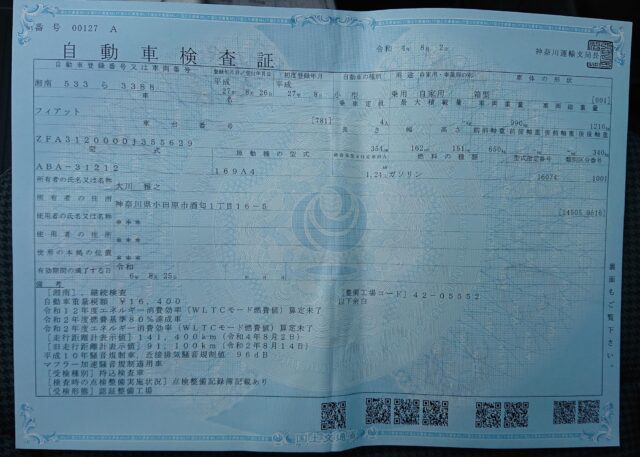 番号 00127 A
自動車検査証
令和 4年 8月 2日
神奈川運輸支局長
自動車登録番号又は車両番号 登録年月日/交付年月日 初度登録年月 自動車の種別 用途 自家用・事業用の別 車体の形状
湘南 533 ら 3388 平成 27年 8月 26日 平成 27年 8月 小型 乗用 自家用 箱型 [001]
車名 乗車定員 最大積載量 車両重量 車両総重量
フィアット [781] 4人 996kg 1216kg
車台番号 長さ 幅 高さ 前前軸重 前後軸重 後前軸重 後後軸重
ZFA3120000J355629 354cm 162cm 151cm 650kg 340kg
型式 原動機の型式 燃料の種類 型式指定番号 類別区分番号
ABA-31212 169A4 1.24 ガソリン 16074 1001
所有者の氏名又は名称 大川 雅之
所有者の住所 神奈川県小田原市酒匂1丁目16-5 [14505 0616]
使用者の氏名又は名称 ***
使用者の住所 ***
使用の本拠の位置 ***
有効期間の満了する日 令和 6年 8月 25日
備考
[湘南], 継続検査
自動車重量税額 ¥16,400
令和12年度エネルギー消費効率(WLTCモード燃費値)算定未了
令和2年度燃費基準80%達成車
令和2年度エネルギー消費効率(WLTCモード燃費値)算定未了
[走行距離計表示値] 141,400km (令和4年8月2日)
[旧走行距離計表示値] 91,100km (令和2年8月14日)
平成10年騒音規制車, 近接排気騒音規制値 96dB
マフラー加速騒音規制適用車
[受検種別] 持込検査車
[検査時の点検整備実施状況] 点検整備記録簿記載あり
[受検形態] 認証整備工場
[整備工場コード] 42-05552
以下余白
裏面もご覧下さい。
国土交通省